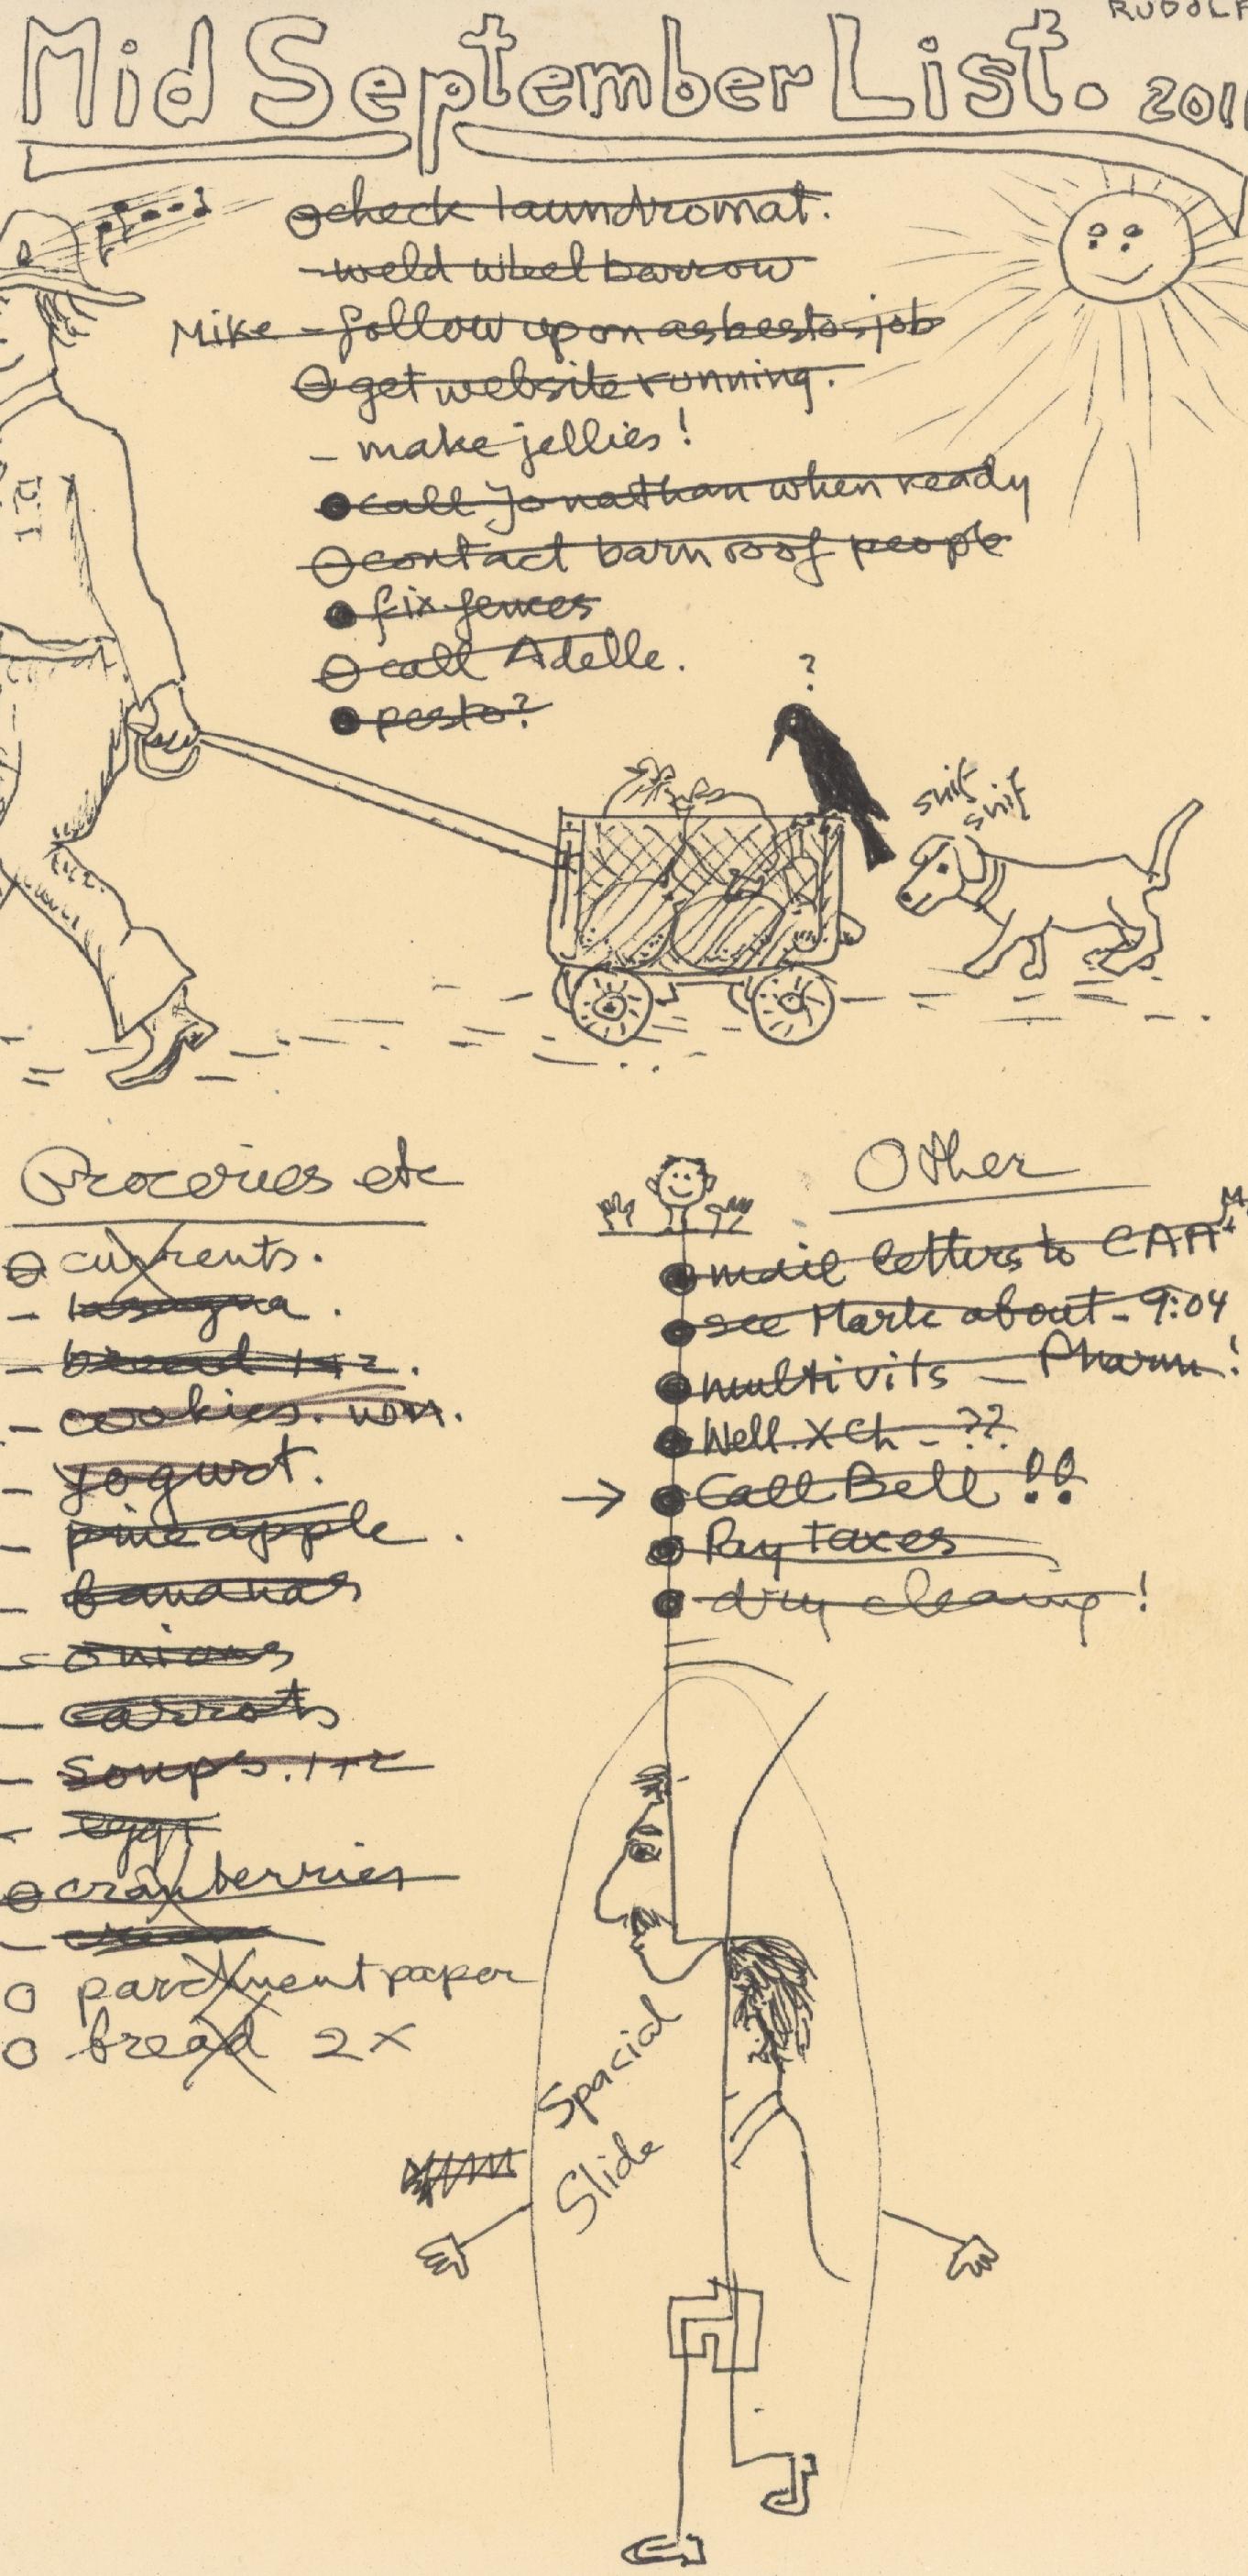 RUDOLF
Mid September List. 2011
check laundromat.
- weld wheel barrow
Mike - follow up on asbestos job
get website running.
- make jellies!
call Jonathan when ready
contact barn roof people
fix fences
call Adelle.
pesto?
?
snif
snif
Groceries etc
currents.
- lasagna.
- bread 1+2.
- cookies.
- yogurt.
- pineapple.
- bananas
- onions
- carrots
- soups. 1+2
- eggs
cranberries
parchment paper
bread 2x
Other
mail letters to CAA+
see Mark about - 9:04
multivits - Pharm!
Well. X Ch - ??
→ Call Bell!!
Pay taxes
dry cleaning!
Spacial
Slide